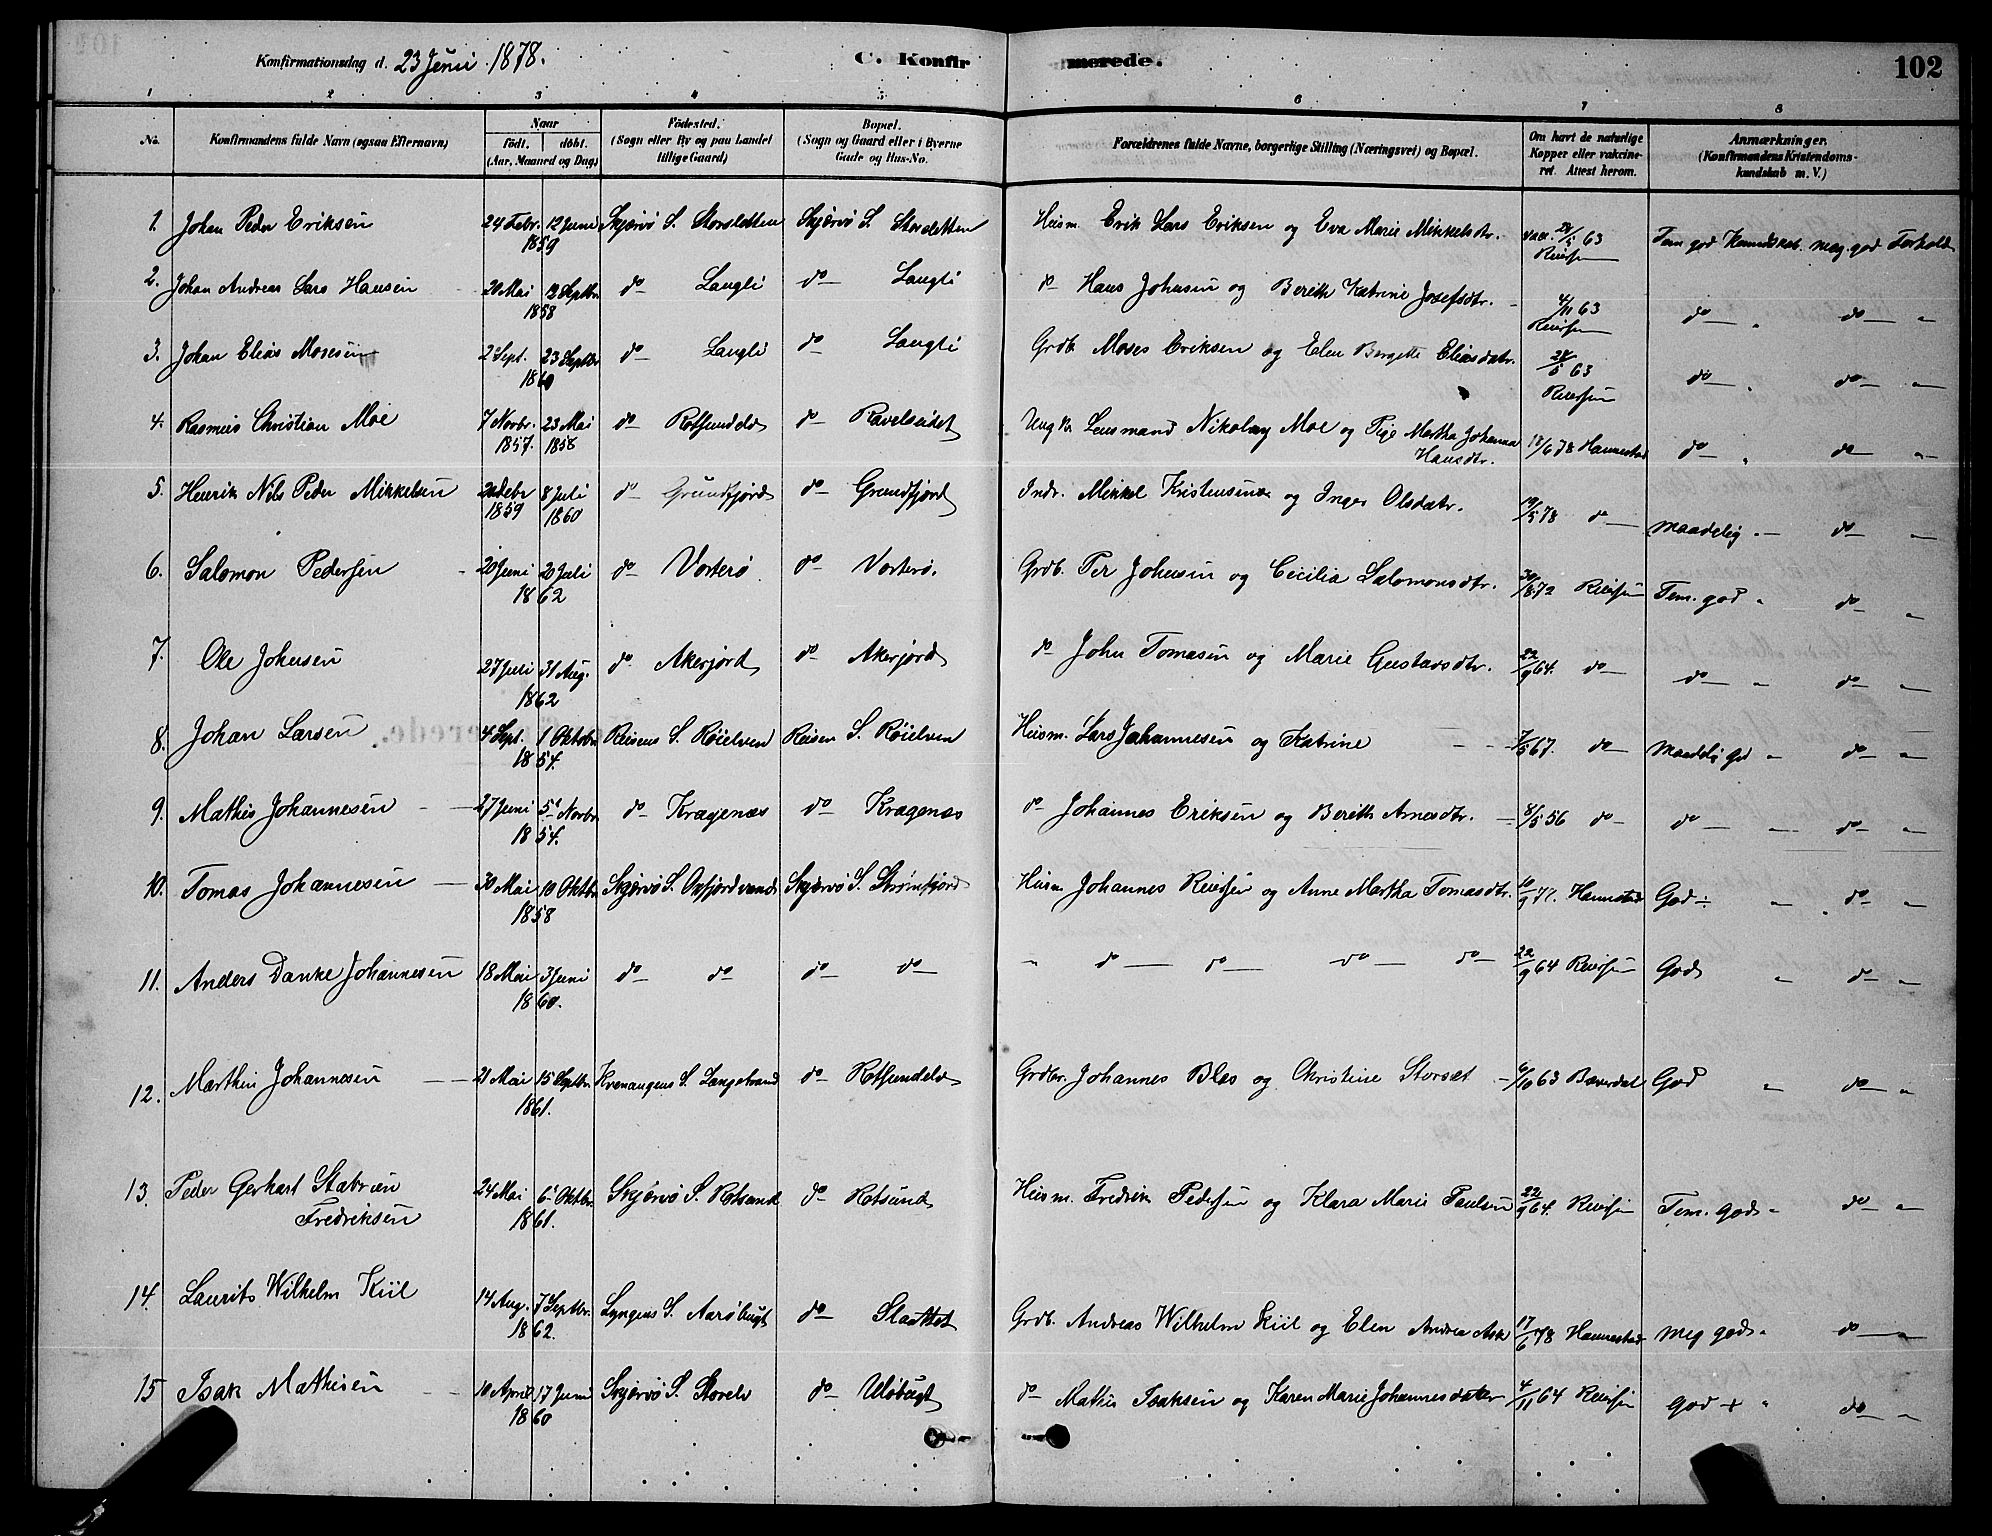 Konfirmationsdag d. 23 Juni 1878. C. Konfirmerede. 102
1 2 3 4 5 6 7 8
No. Konfirmandens fulde Navn (ogsaa Efternavn) Naar födt. döbt. (Aar, Maaned og Dag) Födested. (Sogn eller By og paa Landet tillige Gaard) Bopæl. (Sogn og Gaard eller i Byerne Gade og Hus-No. Forældrenes fulde Navne, borgerlige Stilling (Næringsvei) og Bopæl. Om havt de naturlige Kopper eller vakcineret. Attest herom. Anmærkninger. (Konfirmandens Kristendomskundskab m. V.)
1. Johan Peder Eriksen 24 Febr. 12 Juni 1859 Skjervö S. Storsletten Skjervö S. Storsletten Husm. Erik Lars Eriksen og Eva Marie Mikkelsdtr. vacc. 28/5 63 Reiersen Tem. god Kundskab. meg. god Forhold
2. Johan Andreas Lars Hansen 20 Mai 12 Septbr 1858 do Langli do Langli do Hans Johnsen og Bereth Katrine Josefsdtr. 4/11 63 Reiersen do " do "
3. Johan Elias Mosesen 2 Sept. 23 Septbr 1860 do Langli do Langli Grdb. Moses Eriksen og Elen Bergette Eliasdatr. 28/5 63 Reiersen do " do "
4. Rasmus Christian Moe 7 Novbr. 1857. 23 Mai 1858 do Rotsundelv do Ravelseidet Ungk. Lensmand Nikolay Moe og Pige Martha Johanna Hansdtr. 18/6 78 Hannestad do " do "
5. Henrik Nils Peder Mikkelsen 1859 8 Juli 1860 do Grundfjord do Grundfjord Indr. Mikkel Kristensen og Inger Olsdatr. 19/5 78 do maadelig. do "
6. Salomon Pedersen 20 Juni 20 Juli 1862 do Vorterö do Vorterö. Grdb. Per Johnsen og Cecilia Salomonsdtr. 30/8 72 Reiersen Tem. god " do "
7. Ole Johnsen 27 Juli 31 Aug. 1862 do Akerjord do Akerjord do John Tomasen og Marie Gustavsdtr. 22/9 64. do do " do "
8. Johan Larsen 4 Sept. 1 Oktobr 1854. Reisens S. Röielven Reisen S. Röielven Husm. Lars Johannesen og Katrine 7/5 67. do maadelig god " do "
9. Mathis Johannesen 27 Juni 5 Novbr 1854. do Kragenæs do Kragenæs do Johannes Eriksen og Bereth Arnesdtr. 8/5 56 do do do "
10. Tomas Johannesen 30 Mai 10 Oktbr 1858 Skjervö S. Oxfjordvand Skjervö S. Strömfjord Husm Johannes Reiersen og Anne Martha Tomasdtr. 10/9 77. Hannestad God ÷ " do "
11. Anders Danke Johannesen 18 Mai 3 Juni 1860. do do do do " do do do do 22/9 64 Reiersen God " do "
12. Marthin Johannesen 21 Mai 15 Septbr 1861. Kvenangens S. Langstrand do Rotsundelv Grdbr. Johannes Blæs og Christine Storset 6/10 63 Baverdal God " do "
13. Peder Gerhart Stabrun Fredriksen 24 Mai 6 Oktbr. 1861. Skjervö S. Rotsund do Rotsund Husm. Fredrik Pedersen og Klara Marie Paulsen 22/9 64. Reiersen Tem. god " do "
14. Laurits Wilhelm Kiil 14 Aug. 7 Septbr. 1862. Lyngens S. Aaröbugt do Slaattet Grdb. Andreas Wilhelm Kiil og Elen Andrea Ask 17/6 78 Hannestad meg god " do "
15 Isak Mathisen 10 April 17 Juni 1860 Skjervö S. Storelv do Ulöbugt do Mathis Isaksen og Karen Marie Johannesdater 4/11 64 Reiersen God + " do "